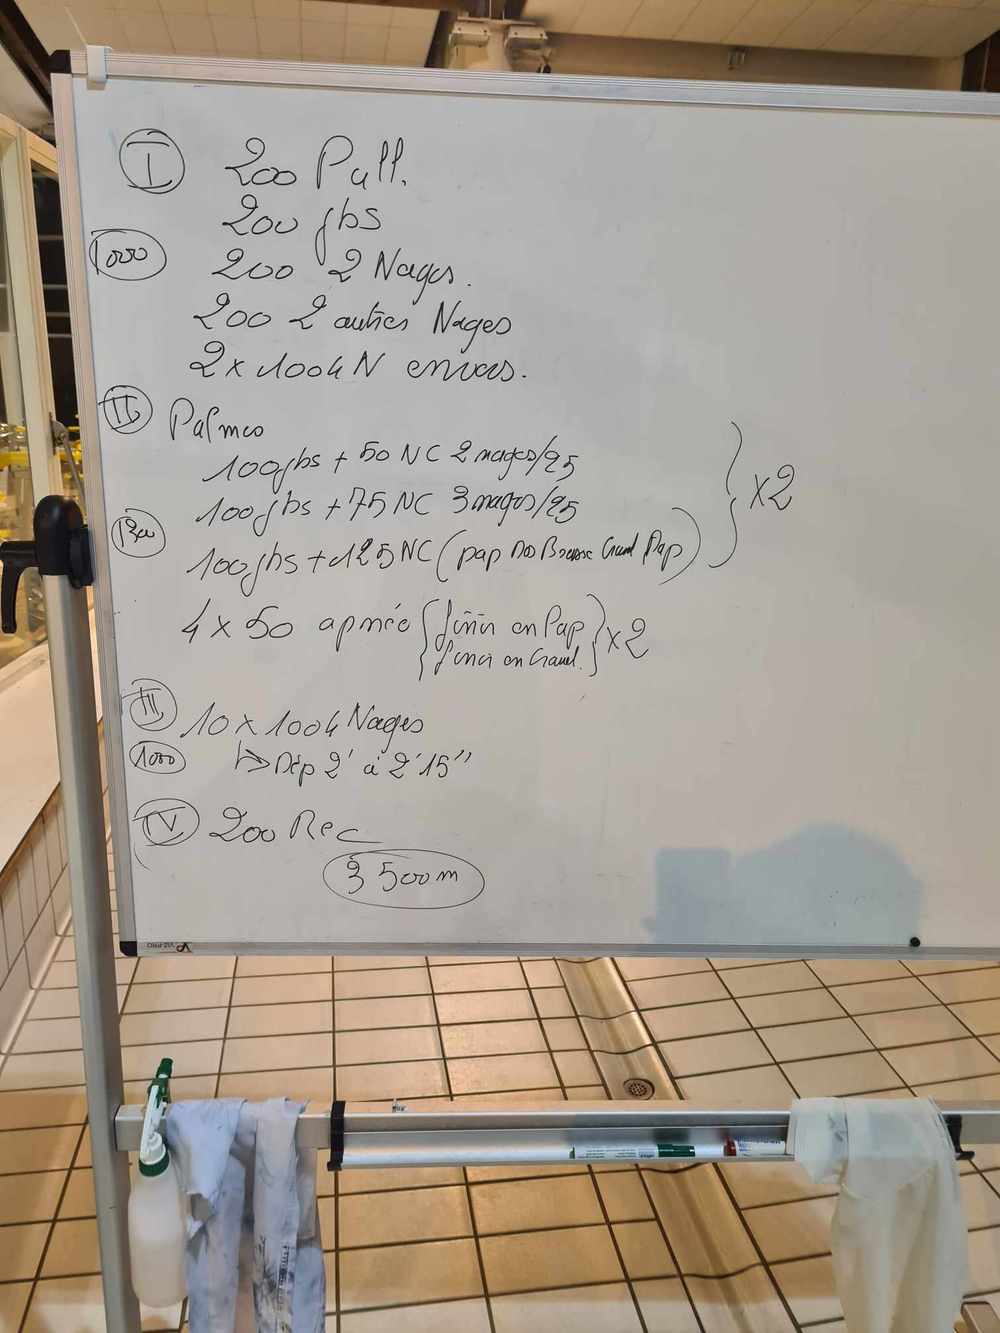 I 200 Pull.
200 jbs
1000
200 2 Nages.
200 2 autres Nages
2 x 100 4N envers.
II Palmes
100 jbs + 50 NC 2 nages/25
100 jbs + 75 NC 3 nages/25
x2
100 jbs + 125 NC (pap Dos Brasse Crawl Pap)
4 x 50 apnée {finir en Pap
finir en Crawl.} x2
III 10 x 100 4 Nages
1000 ↳ Dép 2' à 2'15''
IV 200 Rec
3 500 m